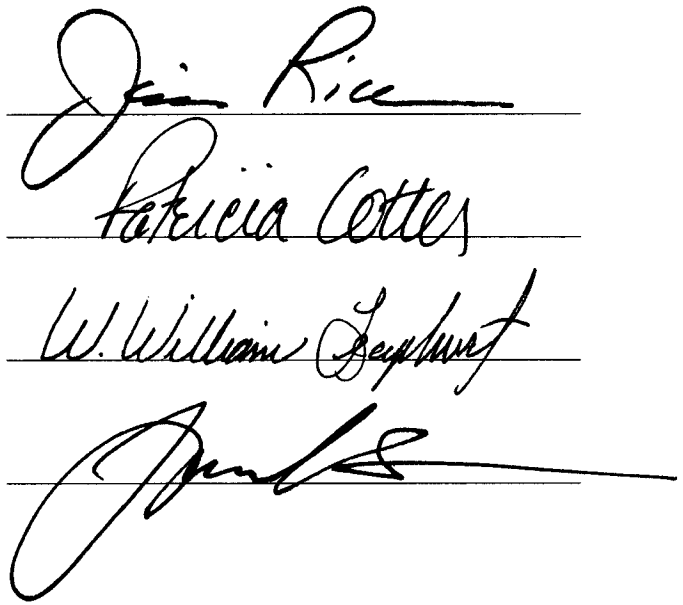 Jim Rice
Patricia Cotter
W. William Leaphart